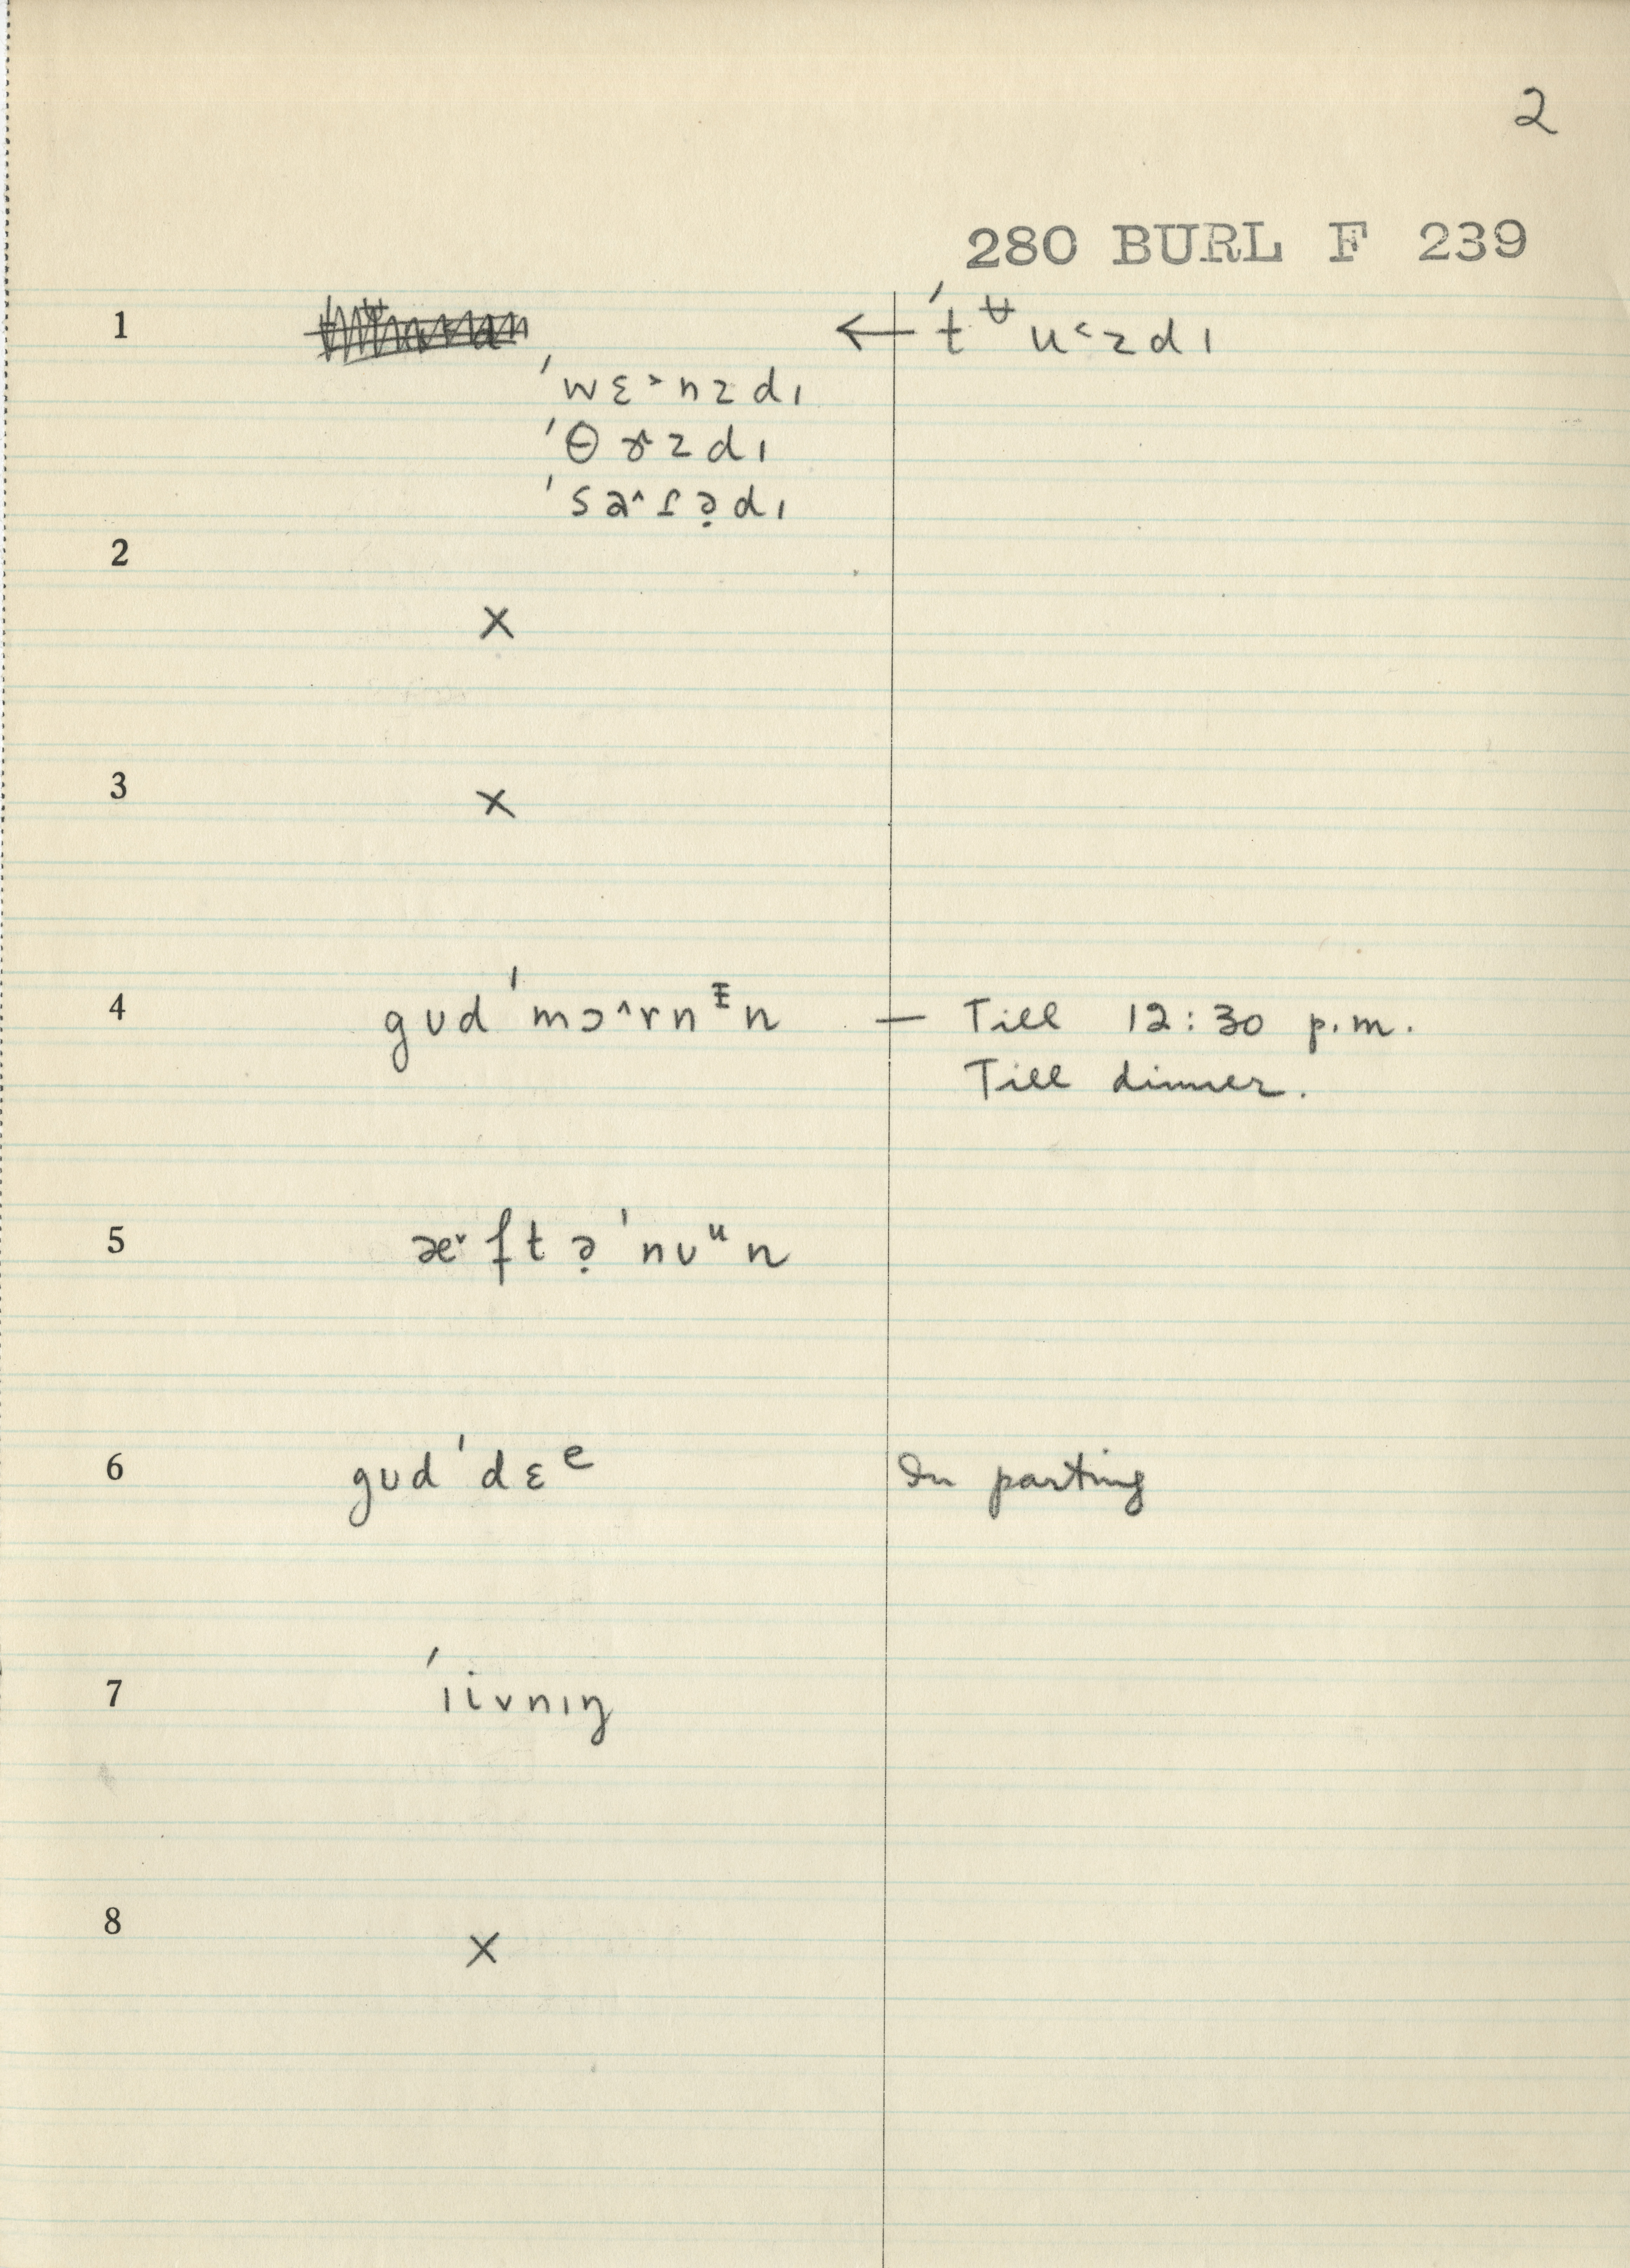 2
280 BURL F 239
1 ← ˈtᵾu˂zdɪ
ˈwɛ˃nzdɪ
ˈθɝzdɪ
ˈsa˄ɾə̣dɪ
2
×
3
×
4 gʊdˈmɔ˄rnᵻn — Till 12:30 p.m.
Till dinner.
5 æ˅ftə̣ˈnʊᵘn
6 gʊdˈdɛᵉ In parting
7 ˈɪivnɪŋ
8
×